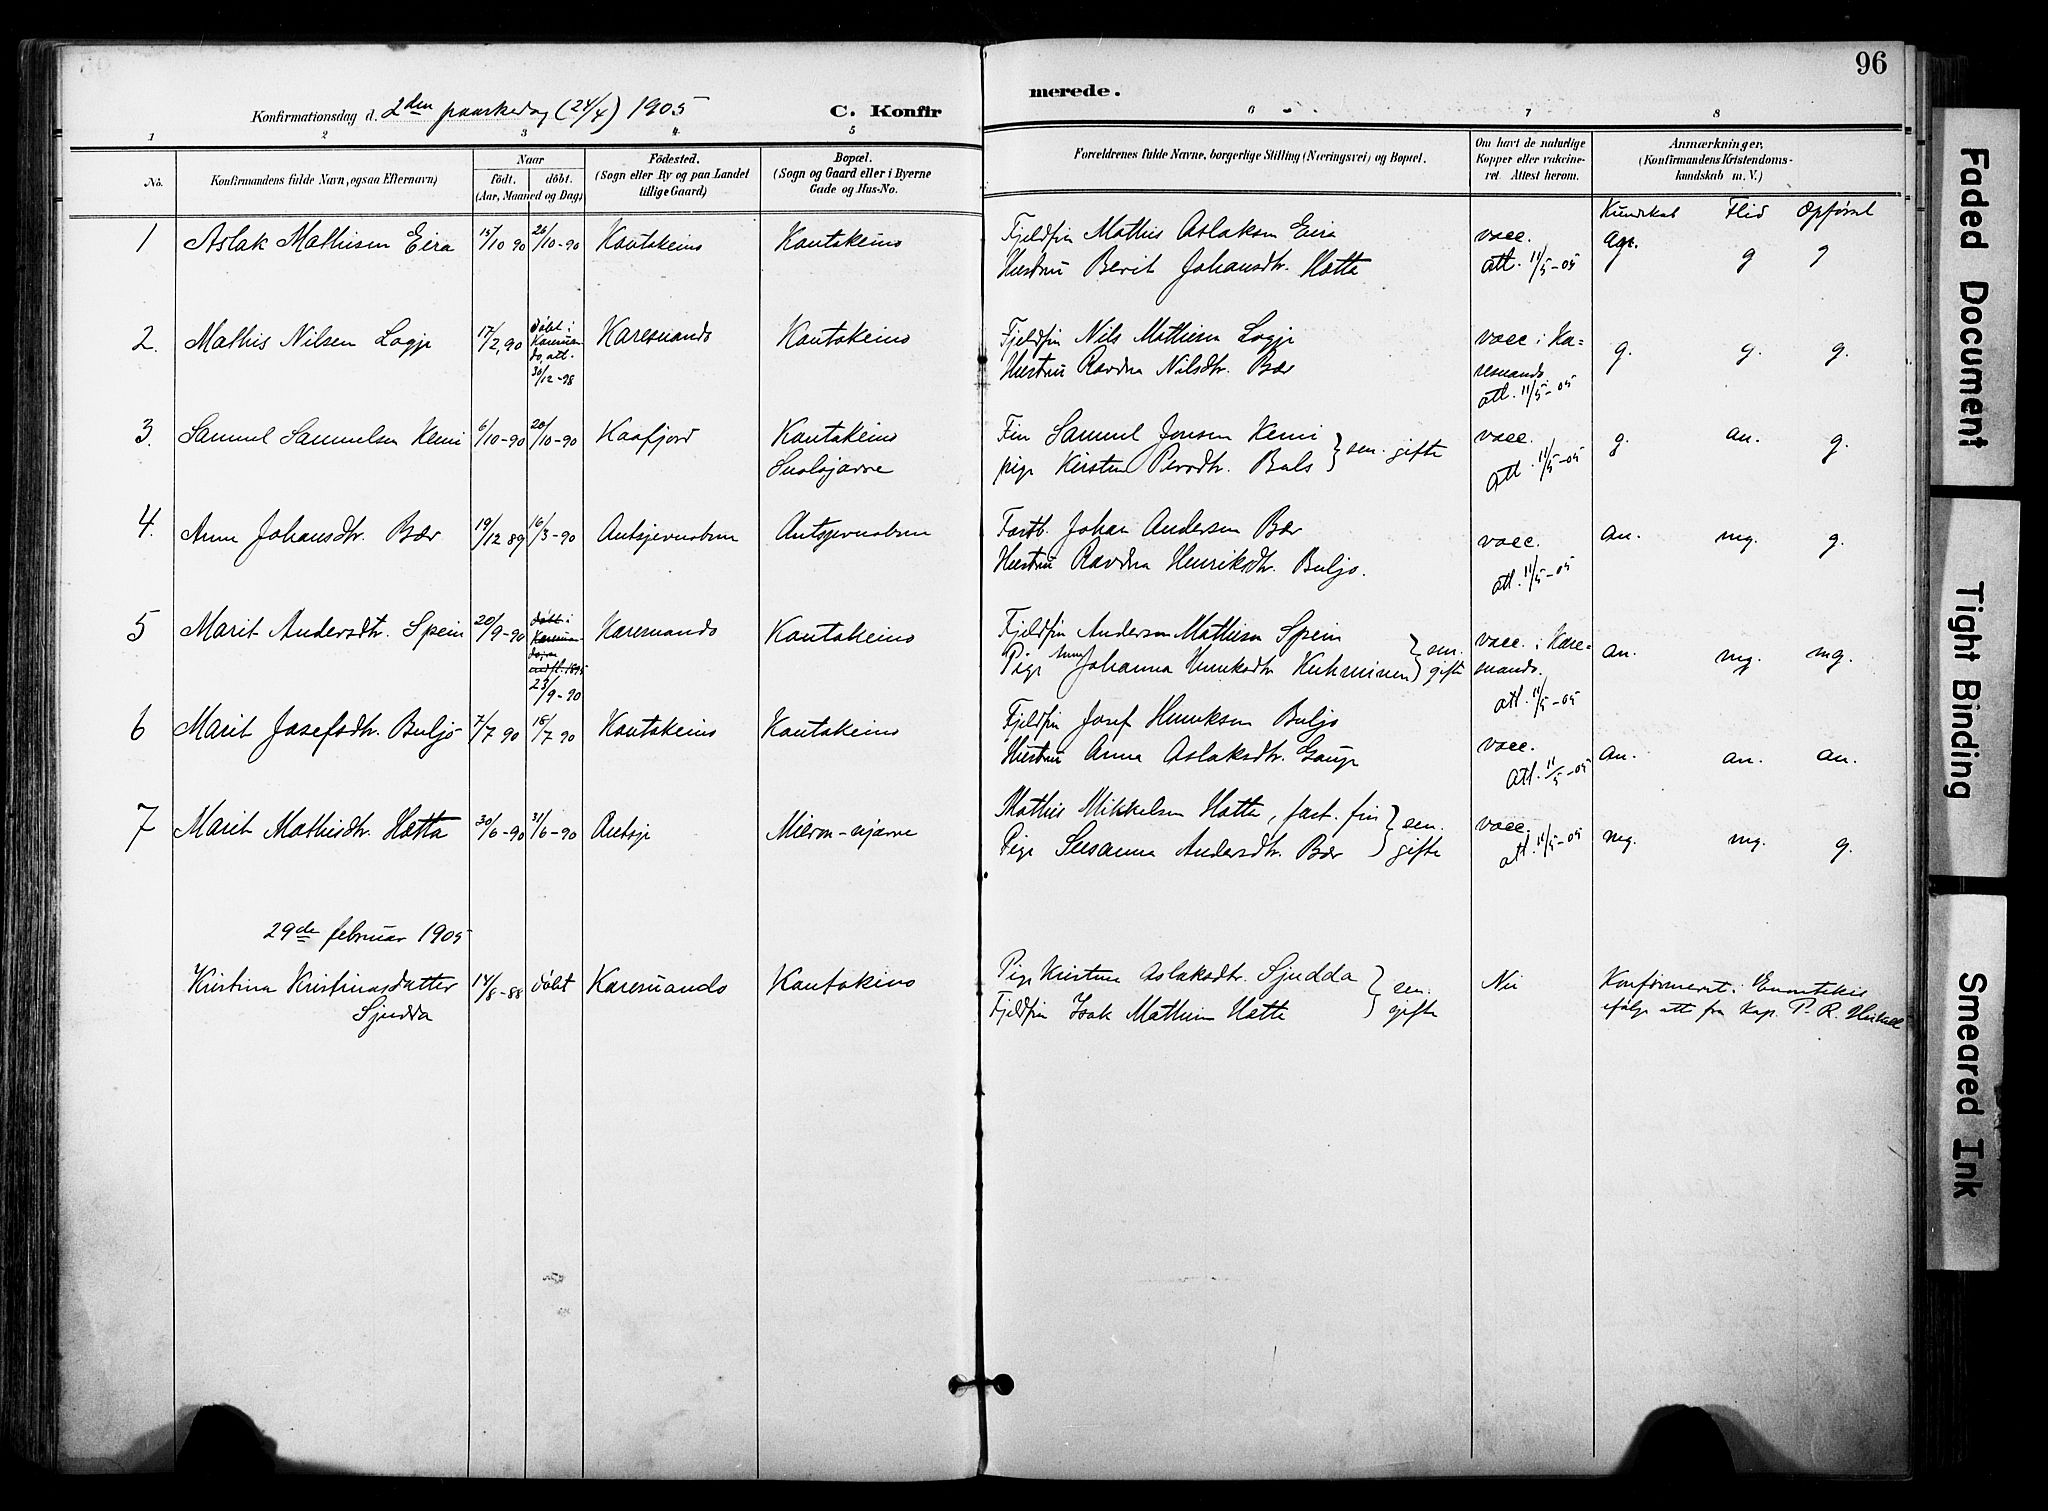 96
Konfirmationsdag d. 2den paaskedag (24/4) 1905 C. Konfirmerede.
1 2 3 4 5 6 7 8
No. Konfirmandens fulde Navn, ogsaa Efternavn) Naar födt. döbt. (Aar, Maaned og Dag) Födested. (Sogn eller By og paa Landet tillige Gaard) Bopæl. (Sogn og Gaard eller i Byerne Gade og Hus-No. Forældrenes fulde Navne, borgerlige Stilling (Næringsvei) og Bopæl. Om havt de naturlige Kopper eller vakcineret. Attest herom. Anmærkninger, (Konfirmandens Kristendomskundskab m. V.)
Kundskab Flid Opførsel
1 Aslak Mathisen Eira 15/10 90 26/10-90 Kautokeino Kautokeino Fjeldfin Mathis Aslaksen Eira vacc. g g
Hustru Berit Johansdtr. Hætta att. 11/5-05
2. Mathis Nilsen Logje 17/2,90 døbt i Karesuando, att. 30/12-98 Karesuando Kautokeino Fjeldfin Nils Mathisen Logje vacc i Ka= g. g. g.
Hustru Ravdna Nilsdtr. Bær resuando att. 11/5-05
3. Samuel Samuelsen Kemi 6/10-90 20/10-90 Kaafjord Kautokeino Fin Samuel Jonsen Kemi } sen. gifte vacc. g. an. g.
Suolojavre pige Kirsten Persdtr. Bals att. 11/5-05
4. Anne Johansdtr. Bær 19/12 89 16/3-90 Autsjevuobme Autsjevuobme Fastb. Johan Andersen Bær vacc. an. mg. g.
Hustru Ravdna Henriksdtr. Buljo. att. 11/5-05
5 Marit Andersdtr. Spein 20/9-90 døbt i Karesuando 23/9-90 Karesuando Kautokeino Fjeldfin Andersen Mathisen Spein } sen. vacc. i Kare= an. mg. mg.
Pige Johanna Henriksdtr Kuhmunen gifte suando. att. 11/5-05
6 Marit Josefsdtr. Buljo 7/7 90 18/7 90 Kautokeino Kautokeino Fjeldfin Josef Henriksen Buljo vacc. an. an. an.
Hustru Anna Aslaksdtr. Gaup att. 11/5-05
7 Marit Mathisdtr. Hætta 30/6-90 31/6-90 Autsje Mieron-njavre Mathis Mikkelsen Hætta, fast. fin } sen. vacc. mg. mg. g.
Pige Susanna Andersdtr. Bær gifte att. 11/5-05
29de februar 1905
Kristina Kristinasdatter 14/8-88 døbt Karesuando Kautokeino Pige Kristine Aslaksdtr. Sjudda } sen. Nei Konfirmeret i Enontekis
Sjudda Fjeldfin Isak Mathisen Hætta gifte ifølge att fra Kap. P. R.
Faded Document
Tight Binding
Smeared Ink